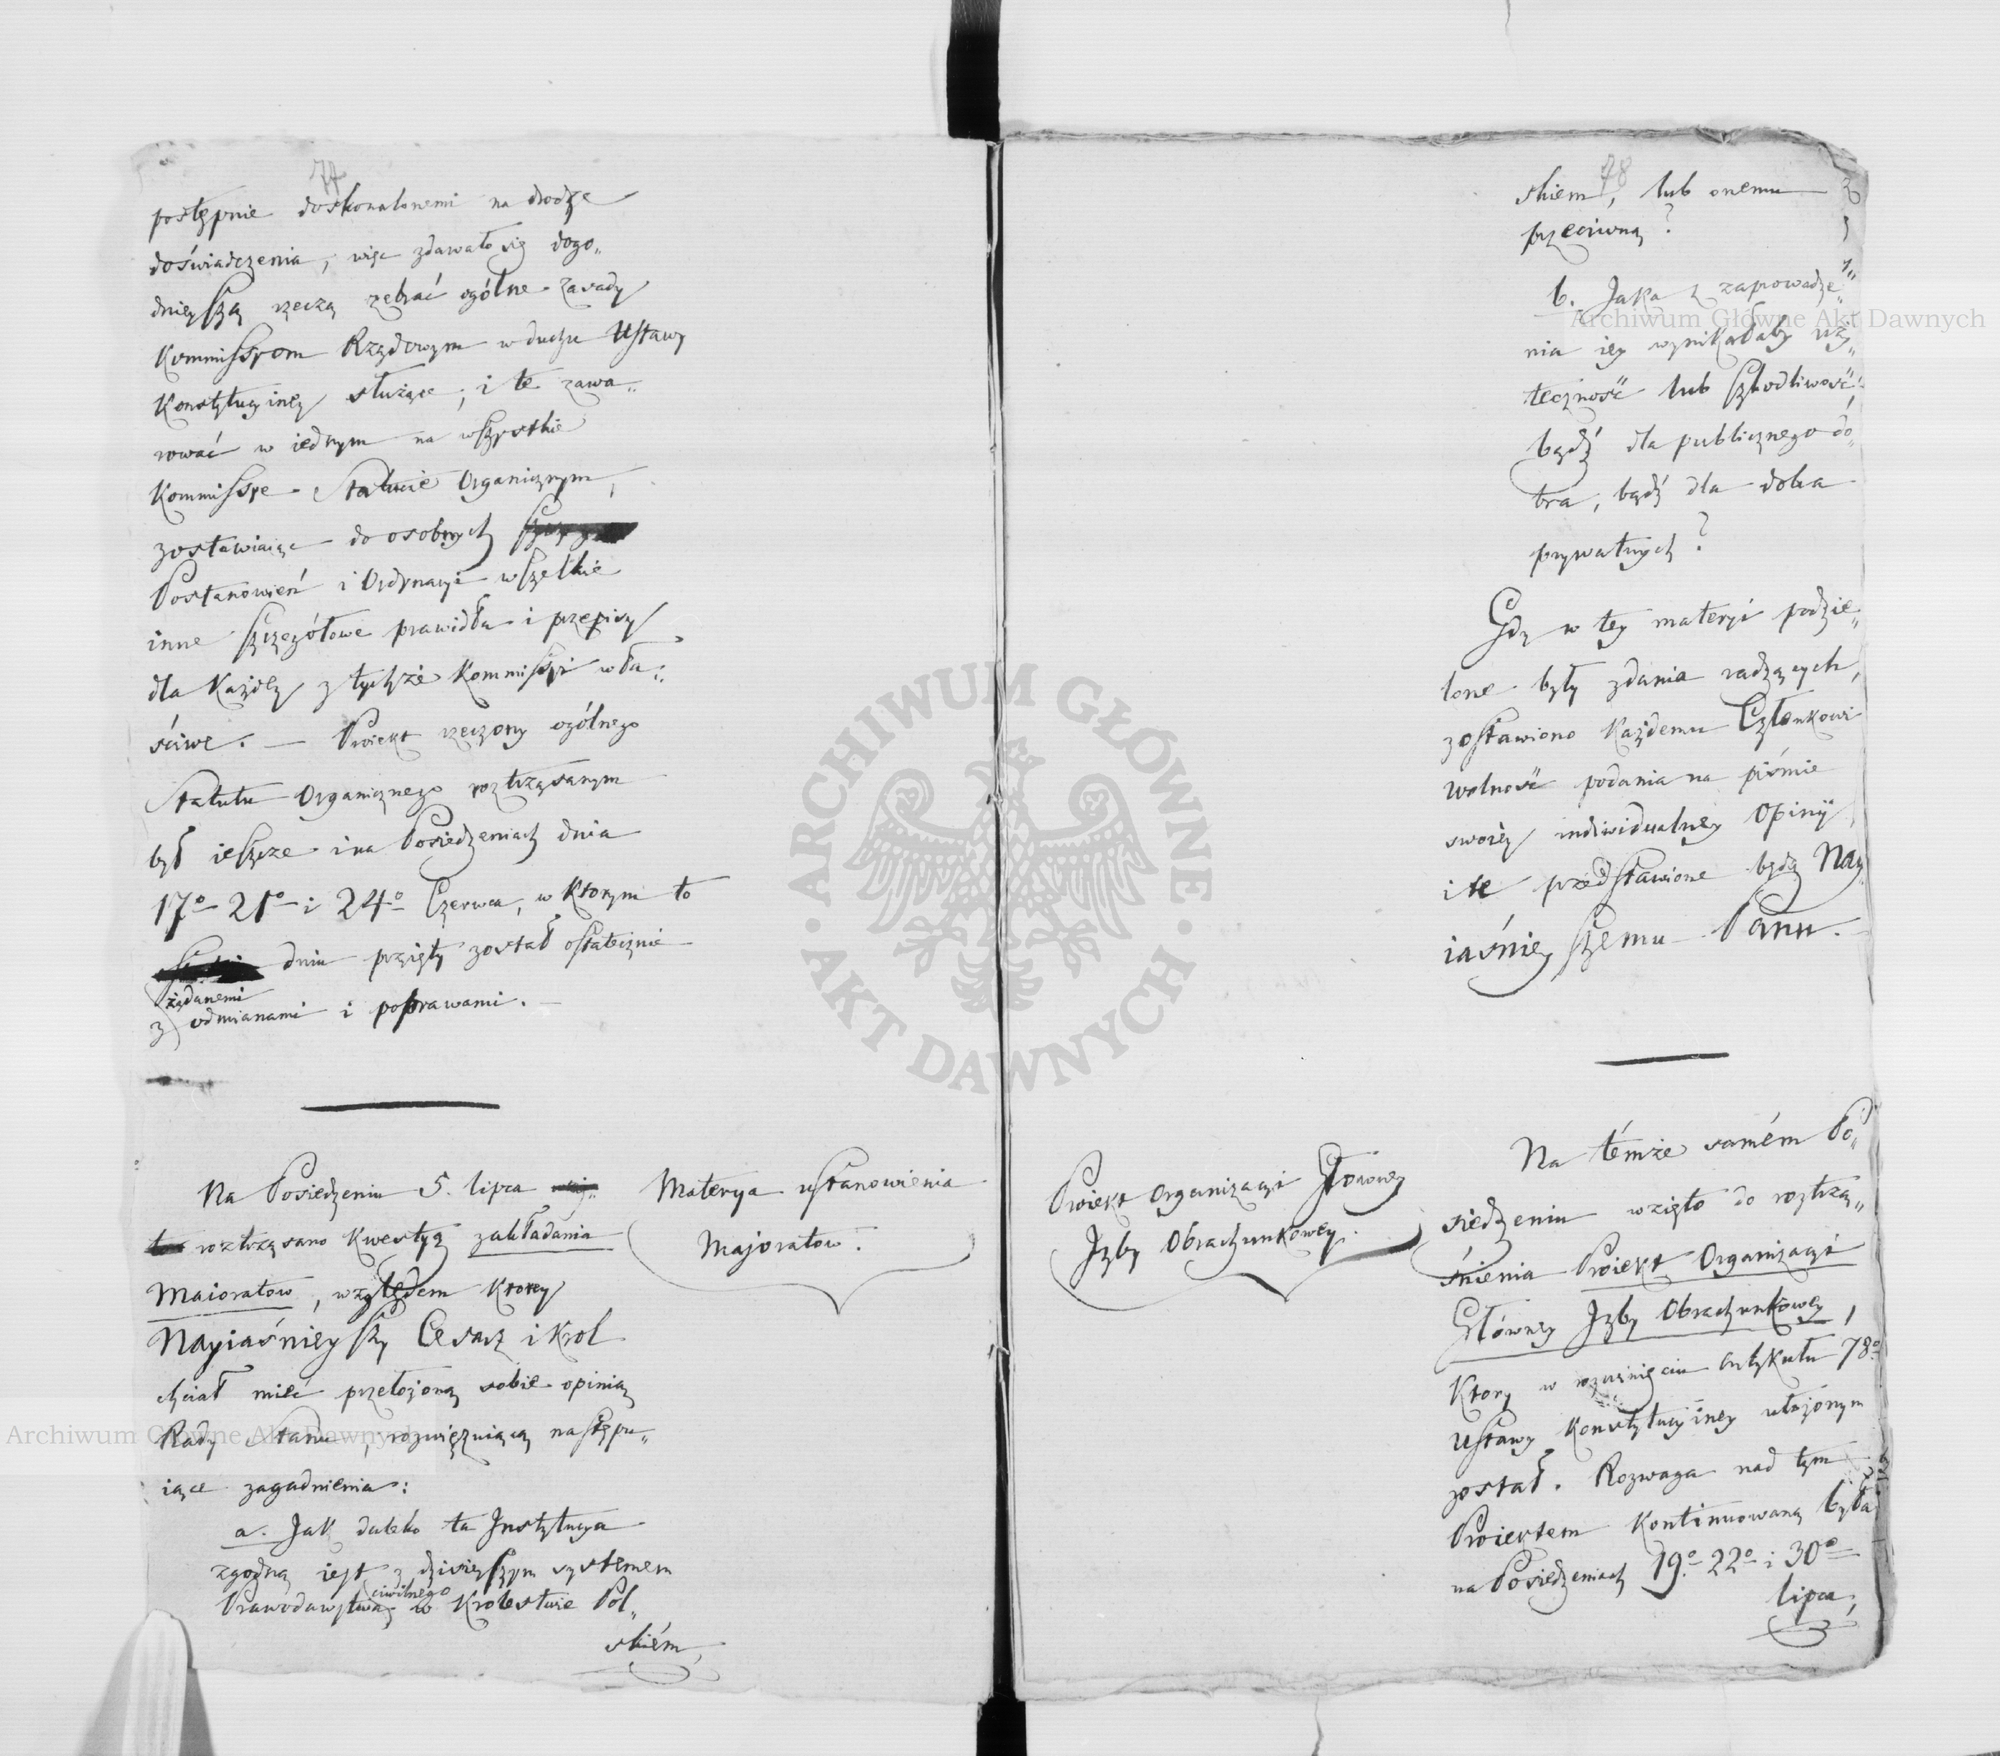 77
postępnie doskonalonemi na drodze
doświadczenia, więc zdawało się dogo„
dnieyszą rzeczą zebrać ogólne zasady
Kommissyom Rządowym w duchu Ustawy
Konstytucyiney służące, i te zawa„
rować w iednym na wszystkie
Kommissye Statucie Organicznym,
zostawiaiąc do osobnych
Postanowień i Ordynacyi wszelkie
inne szczegółowe prawidła i przepisy
dla Każdey z tychże Kommissyi wła„
ściwe. — Proiekt rzeczony ogólnego
Statutu Organicznego roztrząsanym
był ieszcze i na Posiedzeniach dnia
17º 21º i 24º Czerwca, w Ktorym to
dniu przięty został ostatecznie
żądanemi
z odmianami i poprawami. —
Na Posiedzeniu 5. lipca
roztrząsano Kwestyą zakładania
Maioratow, względem Ktorey
Nayiaśnieyszy Cesarz i Krol
chciał mieć przełożoną sobie opinią
Rady Stanu, rozwięzuiącą następu„
iące zagadnienia:
a. Jak daleko ta Instytucya
zgodną iest z dzisieyszym systemem
cywilnego
Prawodawstwa w Krolestwie Pol„
skiém,
Materya ustanowienia
Majoratow.
78
skiem, lub onemu
przeciwną?
b. Jaka z zaprowadze„
nia iey wynikałaby uży„
teczność lub szkodliwość,
bądź dla publicznego do„
bra, bądź dla dobra
prywatnych?
Gdy w tey materyi podzie„
lone były zdania radzących,
zostawiono Każdemu Członkowi
wolność podania na piśmie
swoiey individualney Opinii,
i te przedstawione będą Nay„
iaśnieyszemu Panu. —
Proiekt Organizacyi Głowney
Izby Obrachunkowey.
Na témże samém Po„
siedzeniu wzięto do roztrzą„
śnienia Proiekt Organizacyi
Głównéy Izby Obrachunkowey,
Ktory w rozwinięciu Artykułu 78º
Ustawy Konstytucyiney ułożonym
został. Rozwaga nad tym
Proiektem Kontinuowaną była
na Posiedzeniach 19º 22º i 30º
lipca,
Archiwum Główne Akt Dawnych
Archiwum Główne Akt Dawnych
· ARCHIWUM GŁÓWNE · AKT DAWNYCH